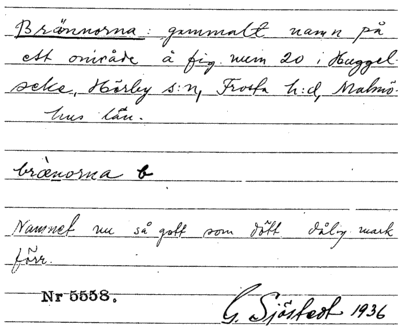 Brännorna: gammalt namn på
ett område å fig. num 20 i Huggel-
seke, Hörby s:n, Frosta h:d, Malmö-
hus län.
brä̀norna b
Namnet nu så gott som dött dålig mark
förr.
Nr 5558.
G. Sjöstedt 1936